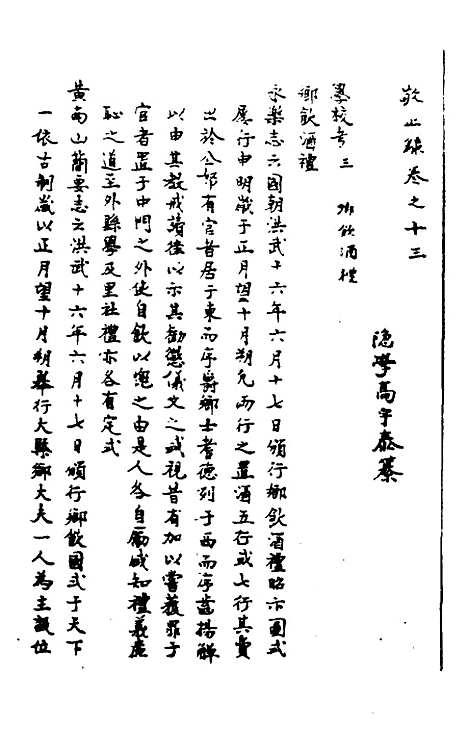 敬止録卷之十三
隐學高宇泰纂
學校考三　鄉飲酒禮
鄉飲酒禮
永樂志云國朝洪武十六年六月十七日頒行鄉飲酒禮昭示圖式
屢行申明歲于正月望十月朔九而行之置酒五行或七行其費
出於公帑有官者居于東而序爵鄉士耆德列于西而序齒揚觶
以由其教戒讀律以示其勸懲儀文之式視昔有加以嘗獲罪于
官者置于中門之外使自飲以愧之由是人各自勵咸知禮義廉
恥之道至外縣學及里社禮亦各有定式
黃南山簡要志云洪武十六年六月十七日頒行鄉飲圖式于天下
一依古制歲以正月望十月朔舉行大縣鄉大夫一人為主設位